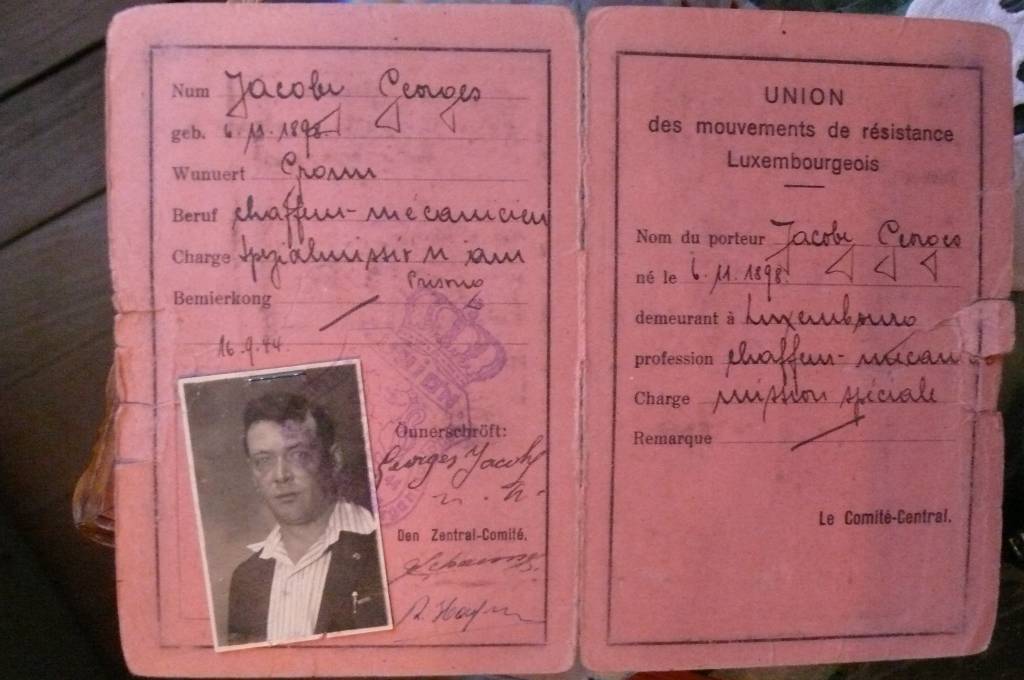 Num Jacoby Georges
geb. 6.11.1898
Wunuert Gronn
Beruf chaffeur-mécanicien
Charge Spezialmissioun am
Prisong
Bemierkong
16.9.44.
Ünnerschröft:
Georges Jacoby
Den Zentral-Comité.
UNION
des mouvements de résistance
Luxembourgeois
Nom du porteur Jacoby Georges
né le 6.11.1898.
demeurant à Luxembourg
profession chaffeur-mécan
Charge mission spéciale
Remarque
Le Comité-Central.